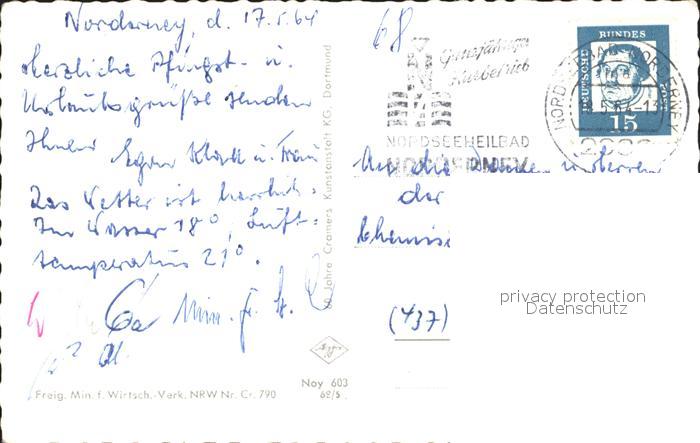 Norderney, d. 17.5.64
herzliche Pfingst- u.
Urlaubsgrüße senden
Ihnen Egon u. Frau
Das Wetter ist herrlich.
Im Wasser 18°, Luft-
temperatur 21°.
68
Ganzjähriger
Kurbetrieb
NORDSEEHEILBAD
NORDERNEY
DEUTSCHE BUNDESPOST
15
An die
der
Chemisi
(437)
privacy protection
Datenschutz
60 Jahre Cramers Kunstanstalt KG. Dortmund
Noy 603
62/5
Freig. Min. f. Wirtsch.-Verk. NRW Nr. Cr. 790